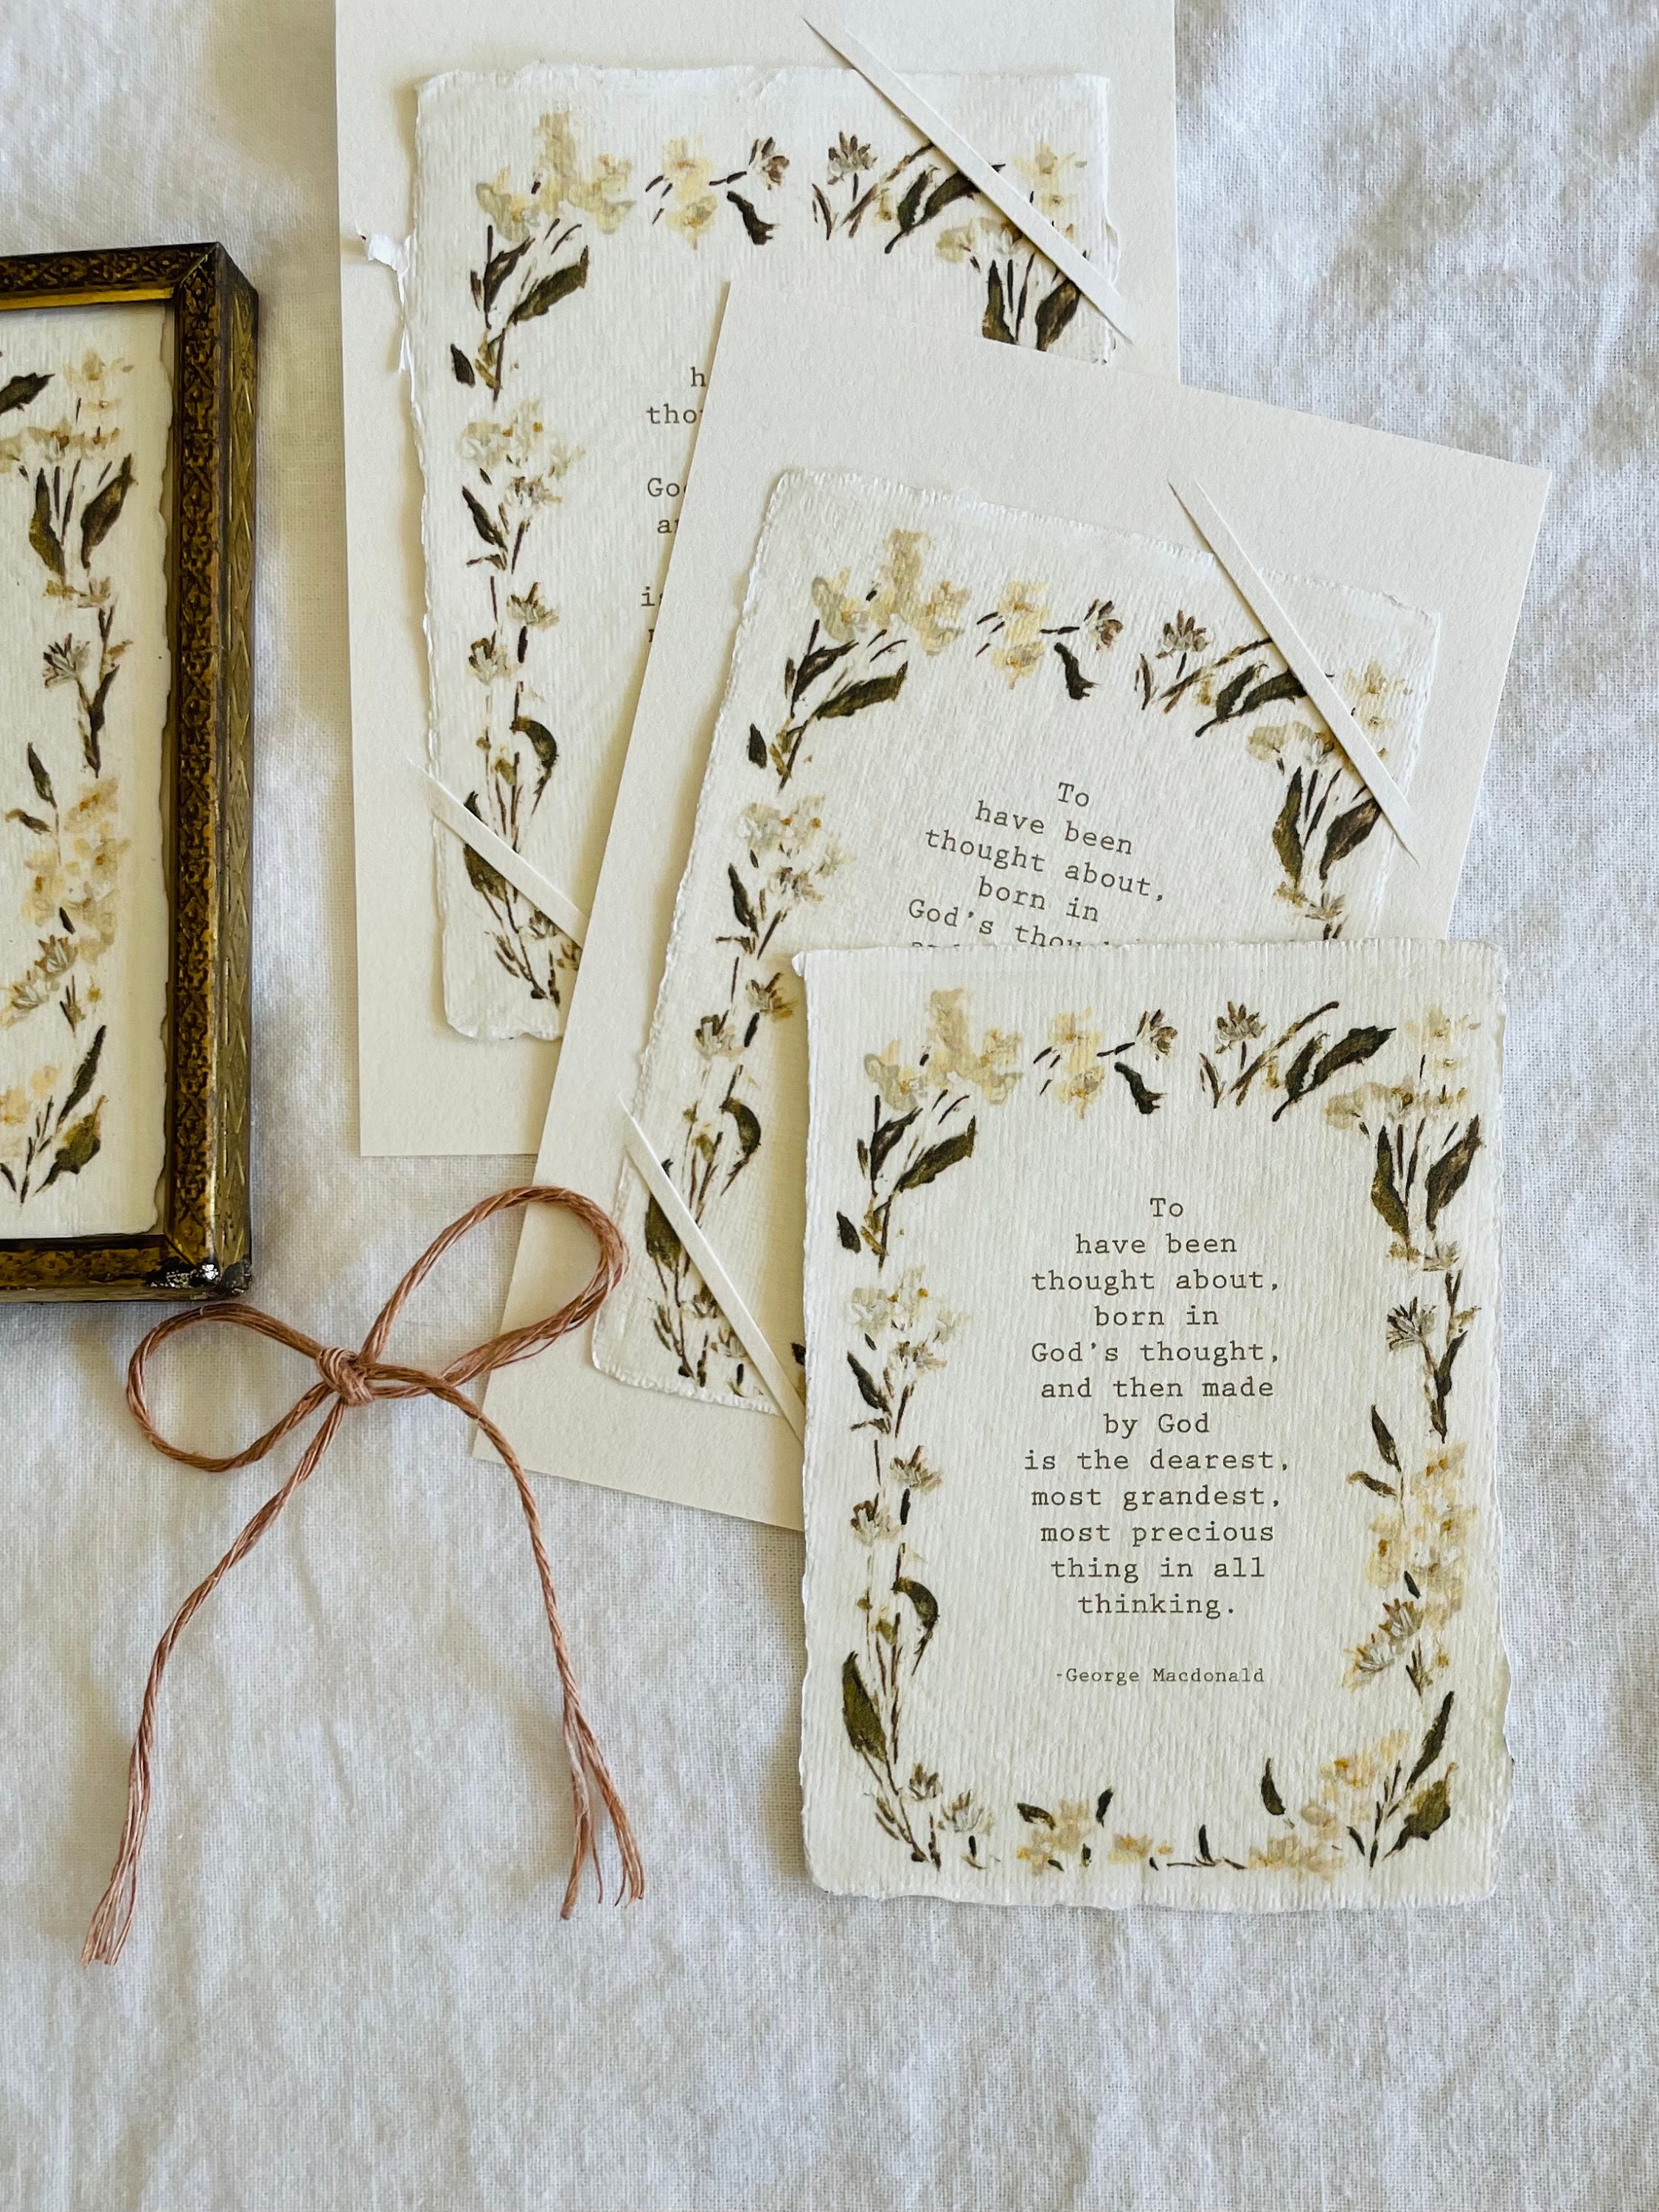 h
tho
God
a
is
To
have been
thought about,
born in
God's thou
To
have been
thought about,
born in
God's thought,
and then made
by God
is the dearest,
most grandest,
most precious
thing in all
thinking.
-George Macdonald